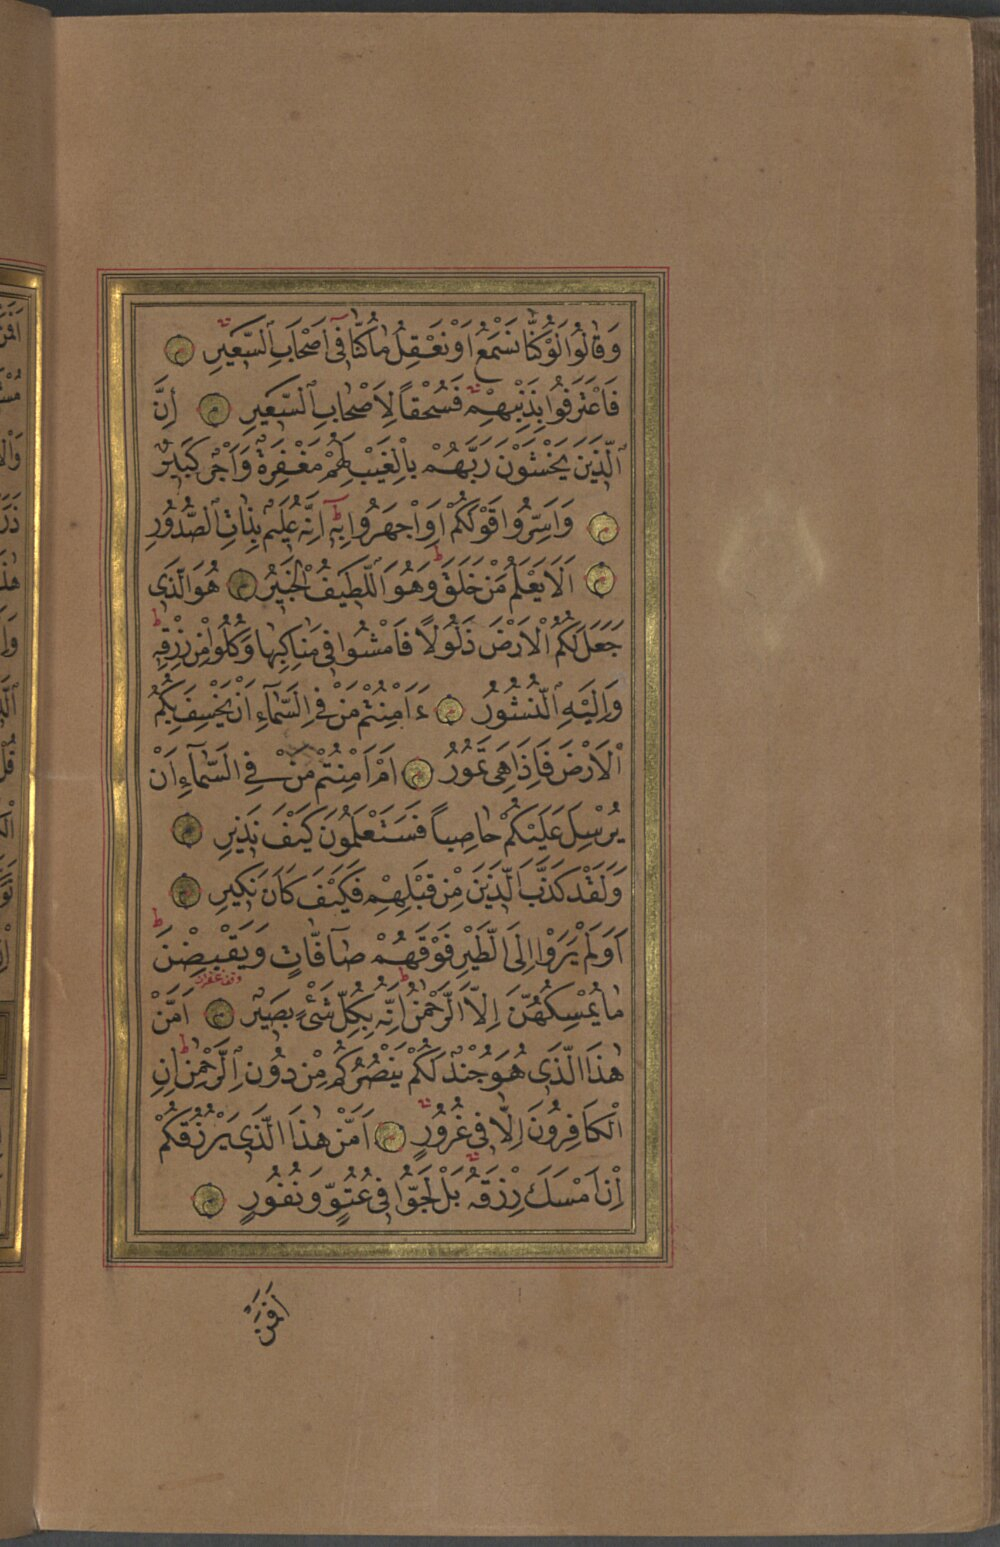 وَقَالُوا لَوْ كُنَّا نَسْمَعُ اَوْ نَعْقِلُ مَا كُنَّا فٓى اَصْحَابِ السَّعٖيرِ
فَاعْتَرَفُوا بِذَنْبِهِمْ فَسُحْقًا لِاَصْحَابِ السَّعٖيرِ اِنَّ
الَّذٖينَ يَخْشَوْنَ رَبَّهُمْ بِالْغَيْبِ لَهُمْ مَغْفِرَةٌ وَاَجْرٌ كَبٖيرٌ
وَاَسِرُّوا قَوْلَكُمْ اَوِ اجْهَرُوا بِهٖ اِنَّهُ عَلٖيمٌ بِذَاتِ الصُّدُورِ
اَلَا يَعْلَمُ مَنْ خَلَقَ وَهُوَ اللَّطٖيفُ الْخَبٖيرُ هُوَ الَّذٖى
جَعَلَ لَكُمُ الْاَرْضَ ذَلُولًا فَامْشُوا فٖى مَنَاكِبِهَا وَكُلُوا مِنْ رِزْقِهٖ
وَاِلَيْهِ النُّشُورُ ءَاَمِنْتُمْ مَنْ فِى السَّمَٓاءِ اَنْ يَخْسِفَ بِكُمُ
الْاَرْضَ فَاِذَا هِىَ تَمُورُ اَمْ اَمِنْتُمْ مَنْ فِى السَّمَٓاءِ اَنْ
يُرْسِلَ عَلَيْكُمْ حَاصِبًا فَسَتَعْلَمُونَ كَيْفَ نَذٖيرِ
وَلَقَدْ كَذَّبَ الَّذٖينَ مِنْ قَبْلِهِمْ فَكَيْفَ كَانَ نَكٖيرِ
اَوَلَمْ يَرَوْا اِلَى الطَّيْرِ فَوْقَهُمْ صَٓافَّاتٍ وَيَقْبِضْنَ
مَا يُمْسِكُهُنَّ اِلَّا الرَّحْمٰنُ اِنَّهُ بِكُلِّ شَىْءٍ بَصٖيرٌ اَمَّنْ
هٰذَا الَّذٖى هُوَ جُنْدٌ لَكُمْ يَنْصُرُكُمْ مِنْ دُونِ الرَّحْمٰنِ اِنِ
الْكَافِرُونَ اِلَّا فٖى غُرُورٍ اَمَّنْ هٰذَا الَّذٖى يَرْزُقُكُمْ
اِنْ اَمْسَكَ رِزْقَهُ بَلْ لَجُّوا فٖى عُتُوٍّ وَنُفُورٍ
اَفَمَنْ